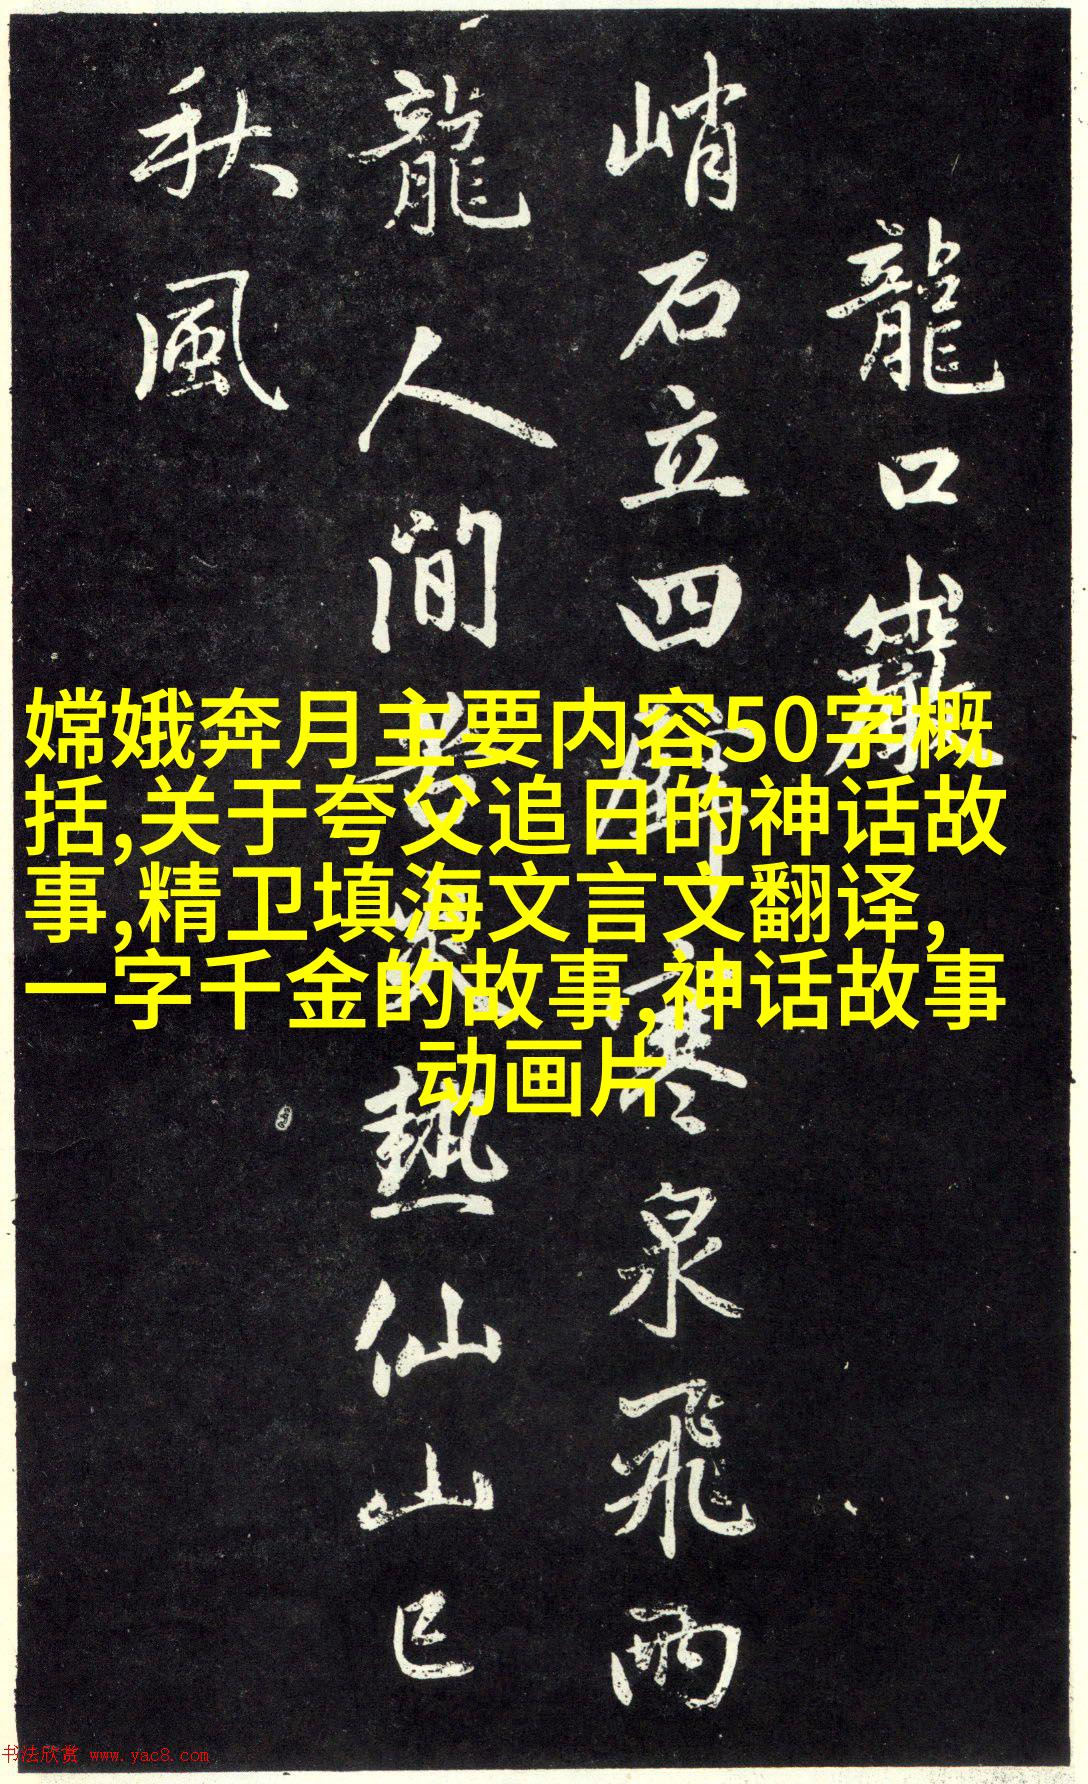 龍口巖
峭石立四癖寒泉飛雨
龍人間苦炎熱仙山已
秋風
嫦娥奔月主要内容50字概
括,关于夸父追日的神话故
事,精卫填海文言文翻译,
一字千金的故事,神话故事
动画片
书法欣赏 www.yac8.com